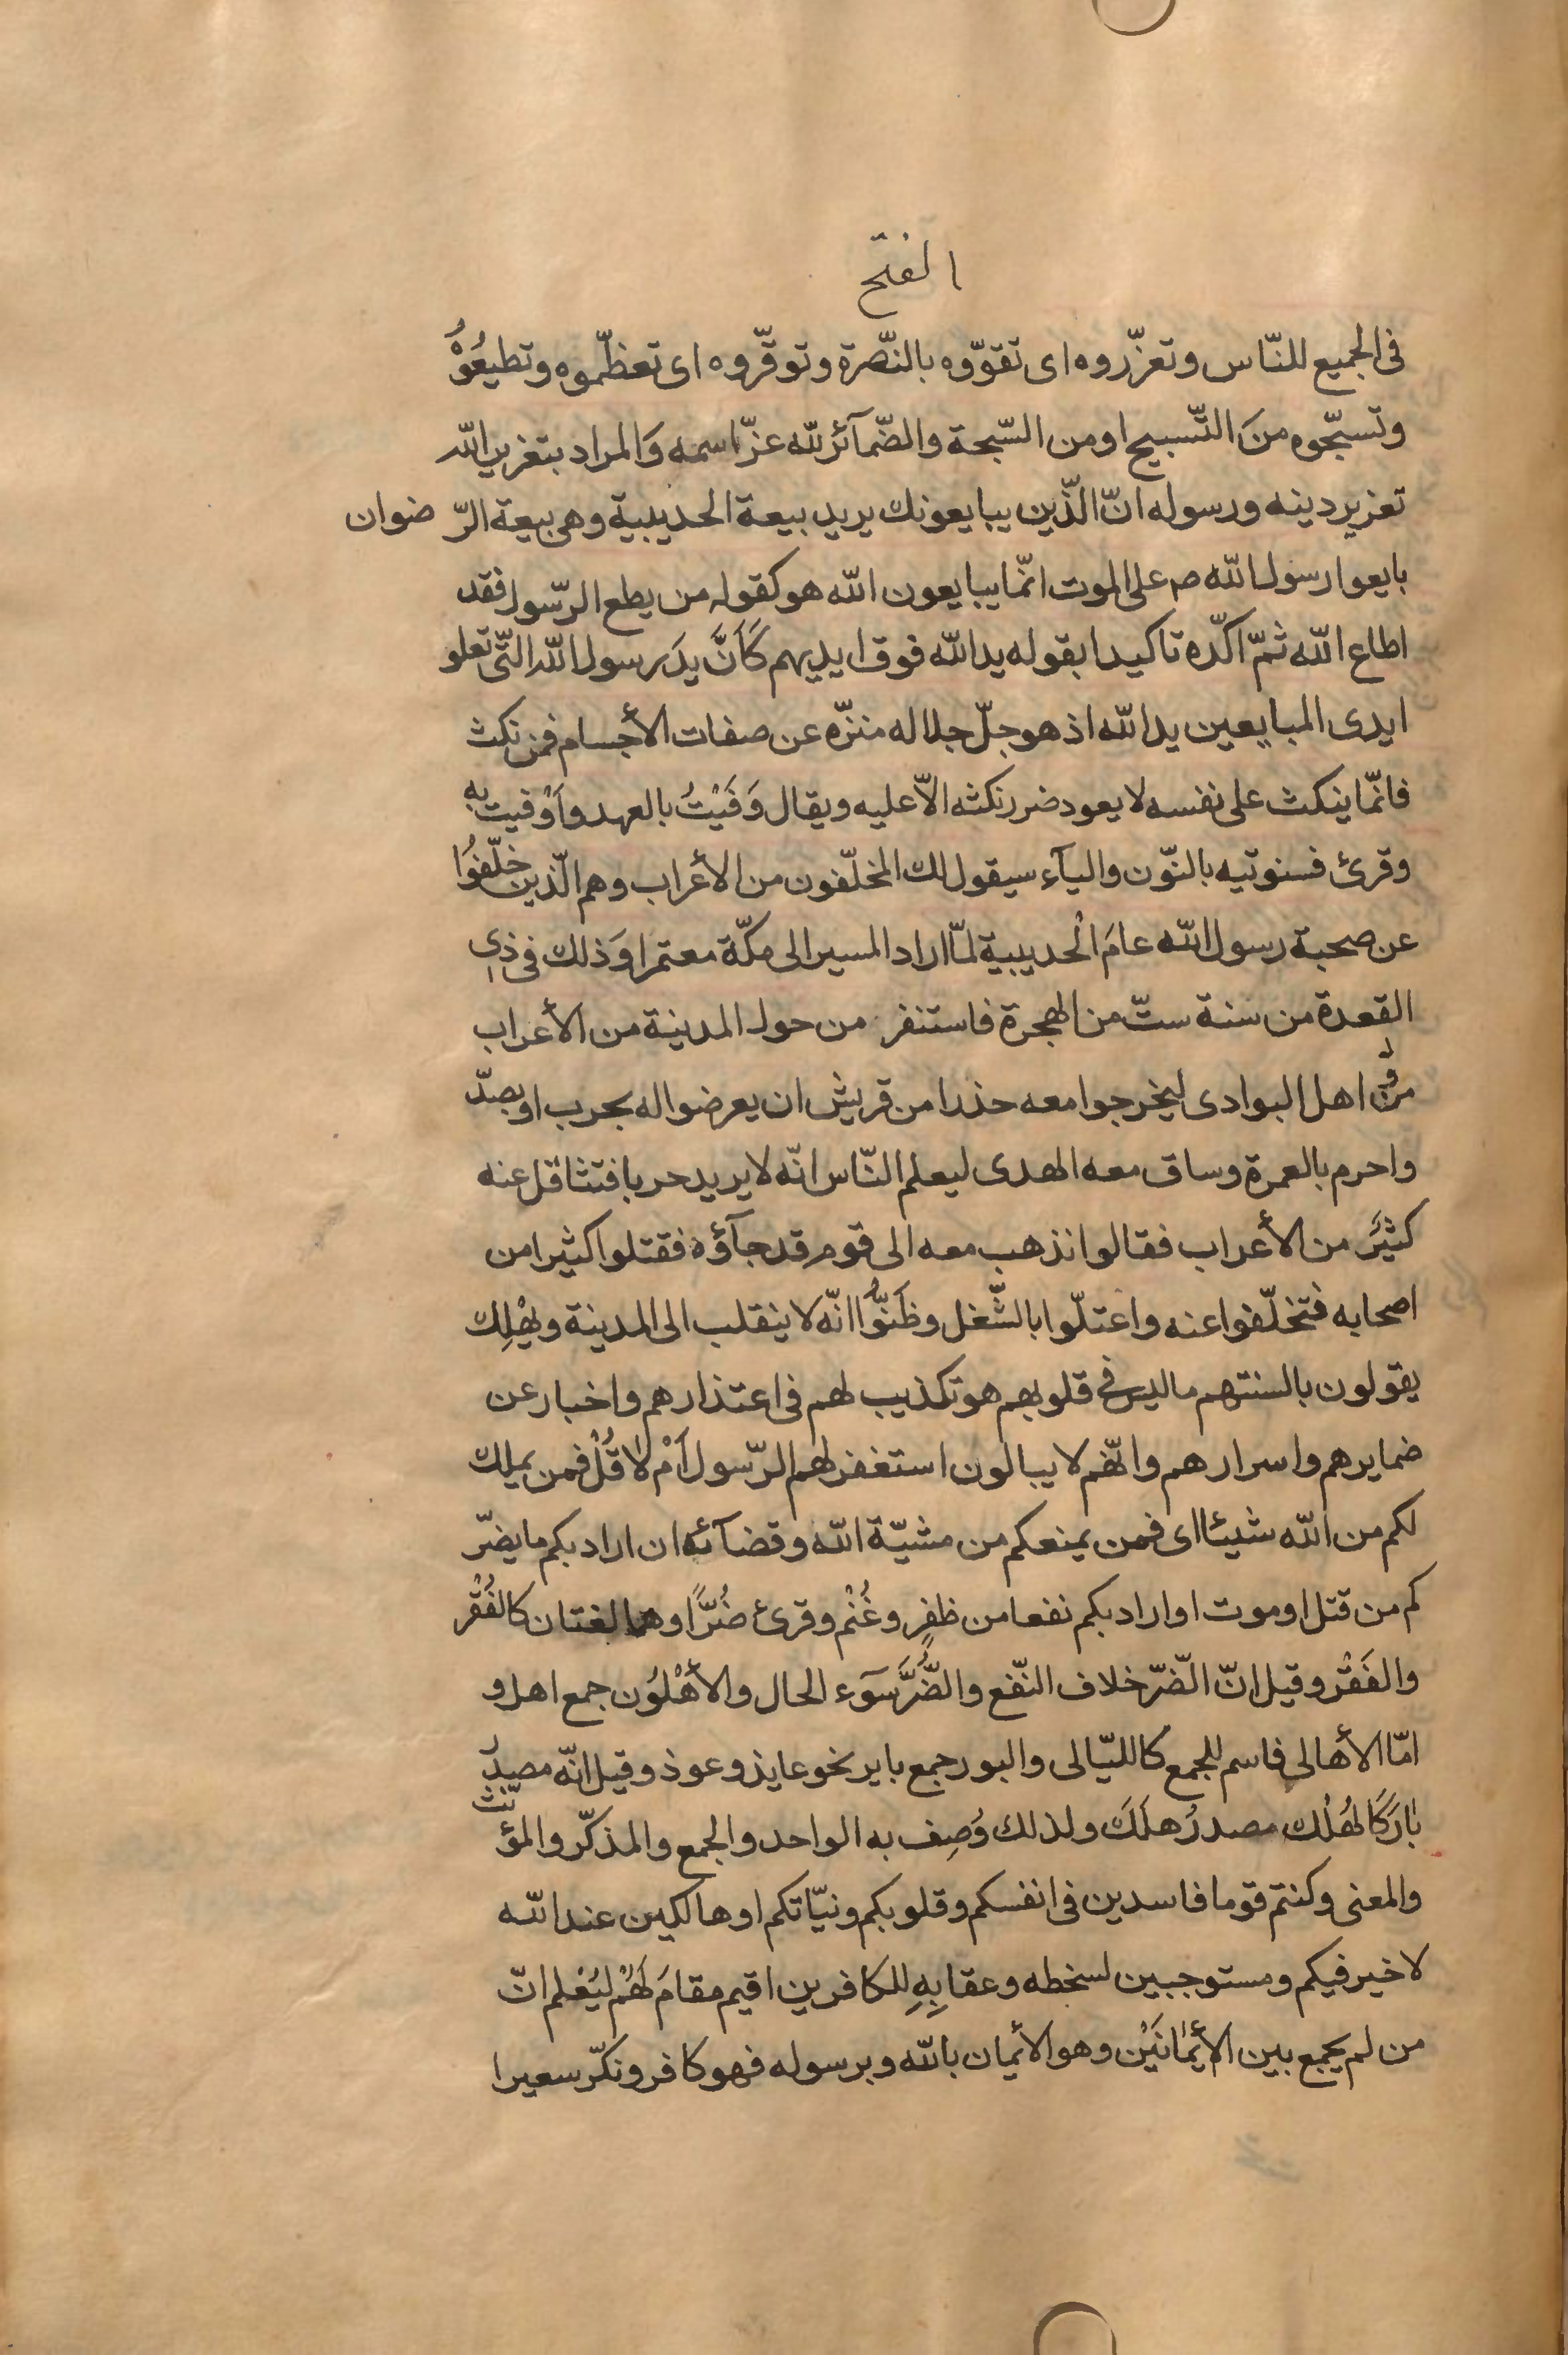 الفتح
فى الجميع للنّاس وتعزّروه اى تقوّوه بالنّصرة وتوقّروه اى تعظّموه وتطيعُوْهُ
وتسبّحوه منَ التّسبيح او من السّبحة والضّمآئر للّه عزّ اسمه وَالمراد بتعزير اللّه
تعزير دينه ورسوله انّ الّذين يبايعونك يريد بيعة الحديبية وهى بيعة الرّضوان
بايعوا رسول اللّه ص على الموت انّما يبايعون اللّه هو كقوله من يطع الرّسول فقد
اطاع اللّه ثمّ اكّده تاكيدا بقوله يد اللّه فوق ايديهم كَاَنَّ يدَ رسول اللّه التّى تعلو
ايدى المبايعين يد اللّه اذ هو جلّ جلاله منزّه عن صفات الأجسام فمن نكث
فانّما ينكث على نفسه لا يعود ضرر نكثه الاّ عليه ويقال وَفَيْتُ بالعهد واَوْفيت بِه
وقرئ فسنوتيه بالنّون واليآء سيقول لك المخلّفون من الأعراب وهم الّذين خلّفوُا
عن صحبة رسول اللّه عامَ الْحديبية لمّا اراد المسير الى مكّة معتمرا وَذلك فى ذِى
القعدة من سنة ستّ من الهجرة فاستنفر من حول المدينة من الأعراب
ومن اهل البوادى ليخرجوا معه حذرا من قريش ان يعرضوا له بحرب او يصدّ
واحرم بالعمرة وساق معه الهدى ليعلم النّاس انّه لا يريد حربا فتثاقل عنه
كثيَر من الأعراب فقالوا نذهب معه الى قوم قد جآؤه فقتلوا كثيرا من
اصحابه فتخلّفوا عنه واعتلّوا بالشّغل وظَنوُّا انّه لا ينقلب الى المدينة ويَهْلِك
يقولون بالسنتهم ما ليس فى قلوبهم هو تكذيب لهم فى اعتذارهم واخبار عن
ضمايرهم واسرارهم وانّهم لا يبالون استغفر لهم الرّسول اَمْ لا قُلْ فمن يملك
لكم من اللّه شيئا اى فمن يمنعكم من مشيّة اللّه وقضآئه ان اراد بكم ما يضرّ
كم من قتل او موت او اراد بكم نفعا من ظفرٍ وغُنْم وقرئ ضُرًّا وهما لغتان كالفُقْر
والفَقْر وقيل انّ الضّرّ خلاف النّفع والضُّرَّ سوَء الحال والأهْلوُن جمع اهل و
امّا الأهالى فاسم للجمع كاللّيالى والبور جمع باير نحو عايذ وعوذ وقيل انّه مصدر
بارَ كَالهُلْك مصدرُ هلَكَ ولذلك وُصِف به الواحد والجمع والمذكّر والمؤنّث
والمعنى وكنتم قوما فاسدين فى انفسكم وقلوبكم ونيّاتكم او هالكين عند اللّه
لا خير فيكم ومستوجبين لسخطه وعقابِهِ للكافرين اقيم مقامَ لَهُمْ ليَعْلم انّ
من لم يجمع بين الأيمْانَيْن وهو الأيمان باللّه وبرسوله فهو كافر ونكّر سعيرا